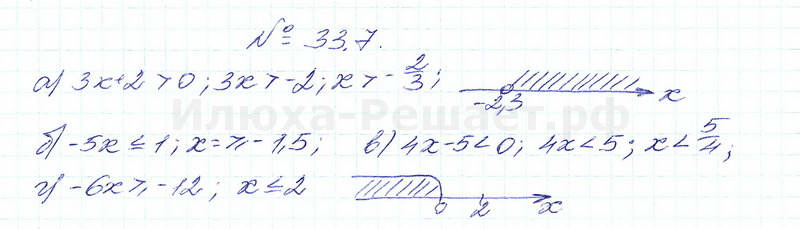 № 33.7.
а) 3x+2>0; 3x>-2; x>-2/3; -2,3 x
Илюха-Решает.рф
б) -5x≤1; x=≥-1,5; в) 4x-5<0; 4x<5; x<5/4;
г) -6x≥-12; x≤2 0 2 x